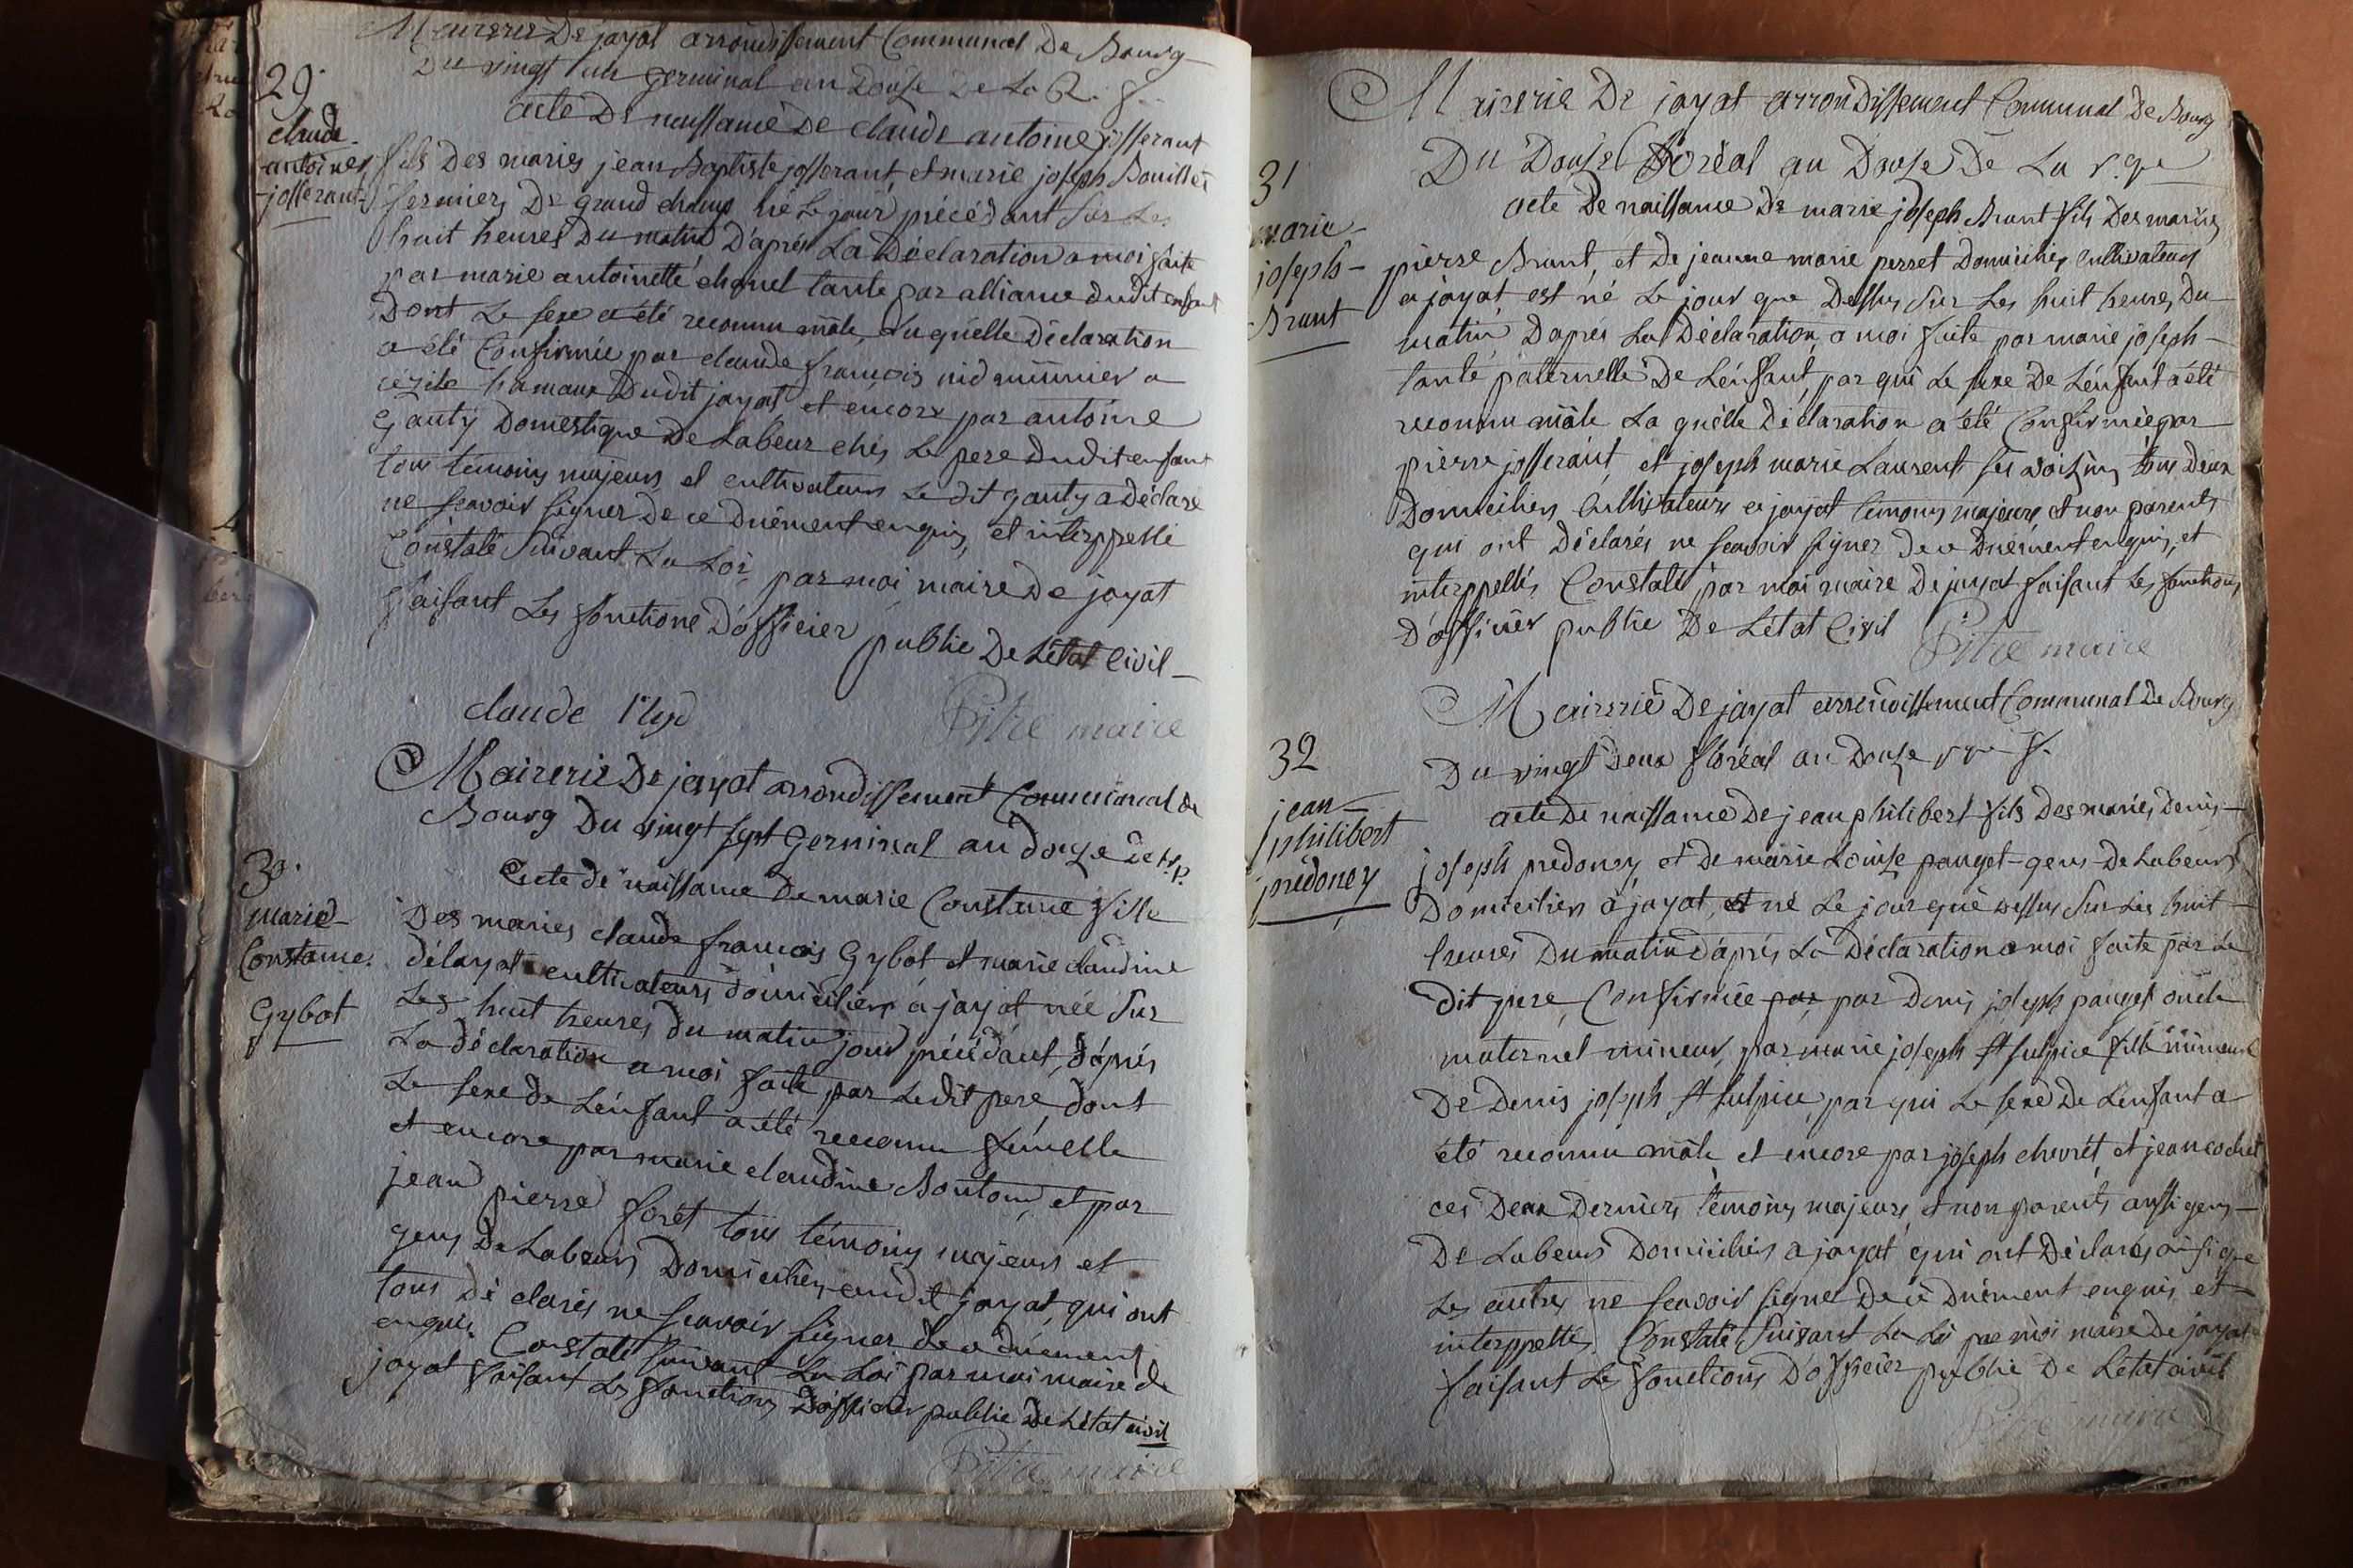 Mairerie De jayat arrondissement Communal De Bourg
Du vingt un germinal an Douse De La R. f.
29.
claude
antoine
josserant
acte De naissance De claude antoine josserant
fils Des maries jean Baptiste josserant, et marie joseph Bouillet
fermiers De grand champ né Le jour précédant sur Les
huit heures Du matin D'aprés La Déclaration a moi faite
par marie antoinette chanel tante par alliance dudit enfant
Dont Le sexe a été reconnu mâle, Laquelle Déclaration
a été Confirmée par claude françois nid meunier a
cézile hameau Dudit jayat et encore par antoine
gauty Domestique De Labeur chés Le pere dudit enfant
tous témoins majeurs et cultivateurs Le dit gauty a Déclaré
ne scavoir signer De ce Duëment enquis, et interppellé
Constaté suivant La Loi, par moi maire De jayat
faisant Les fonctions D'officier public De L'état Civil
claude Nyd
Pitre maire
Mairerie De jayat arrondissement Communal de
Bourg Du vingt sept Germinal an douze De
30.
marie
Constance
Gybot
Acte de naissance De marie Constance fille
Des maries claude françois Gybot et marie claudine
délayat cultivateurs domiciliers à jayat née sur
Les huit heures du matin jour précédant, d'après
La déclaration a moi faite par Ledit pere, dont
Le sexe de L'énfant a été reconnu fémelle
et encore par marie claudine Bontemp, et par
jean pierre forêt tous témoins majeurs et
gens De Labeurs Domiciliers audit jayat, qui ont
tous dé clarés ne scavoir signer de ce duement
enquis. Constaté suivant La Loi par moi maire de
jayat faisant Les fonctions D'officier public De L'état civil
Pitre maire
Mairerie De jayat arrondissement Communal De Bourg
Du Douse floréal an Douse De La r.que
31
marie
joseph
Brunt
acte De naissance De marie joseph Brunt fils Des mariés
pierre Brunt, et De jeanne marie perret Domiciliés cultivateurs
a jayat, est né Le jour que Dessus sur Les huit heures Du
matin D'aprés La Déclaration a moi faite par marie joseph
tante paternelle De L'énfant, par qui Le sexe De L'énfant a été
reconnu mâle La quélle Déclaration a été Confirmée par
pierre josserant et joseph marie Laurent ses voisins tous Deux
Domiciliers Cultivateurs a jayat témoins majeurs et non parents
qui ont Déclarés ne scavoir signer De ce Duëment enquis, et
interppellés Constaté par moi maire De jayat faisant Les fonctions
D'officier public De L'état Civil
Pitre maire
Mairerie De jayat arrondissement Communal De Bourg
Du vingt Deux floréal an Douze r.que f.
32
jean
philibert
prédoney
acte De naissance De jean philibert fils Des mariés Denis
joseph predoney et De marie Louise pauget gens De Labeurs
Domiciliers à jayat, est né Le jour que Dessus sur Les huit
heures Du matin d'aprés La Déclaration a moi faite par Le
dit pere, Confirmée par, par Denis joseph pauget oncle
maternel mineur, par marie joseph St sulpice fille mineure
De Denis joseph St sulpice, par qui Le sexe De L'enfant a
été reconnu mâle et encore par joseph chevrét et jean cochet
ces Deux Derniers témoins majeurs et non parents aussi gens
De Labeurs Domiciliés a jayat qui ont Déclarés ainsi que
Les autres ne scavoir signer De ce Duëment enquis et
interppellés. Constaté suivant La Loi par moi maire de jayat
faisant Les fonctions D'officier public De L'état civil
Pitre maire